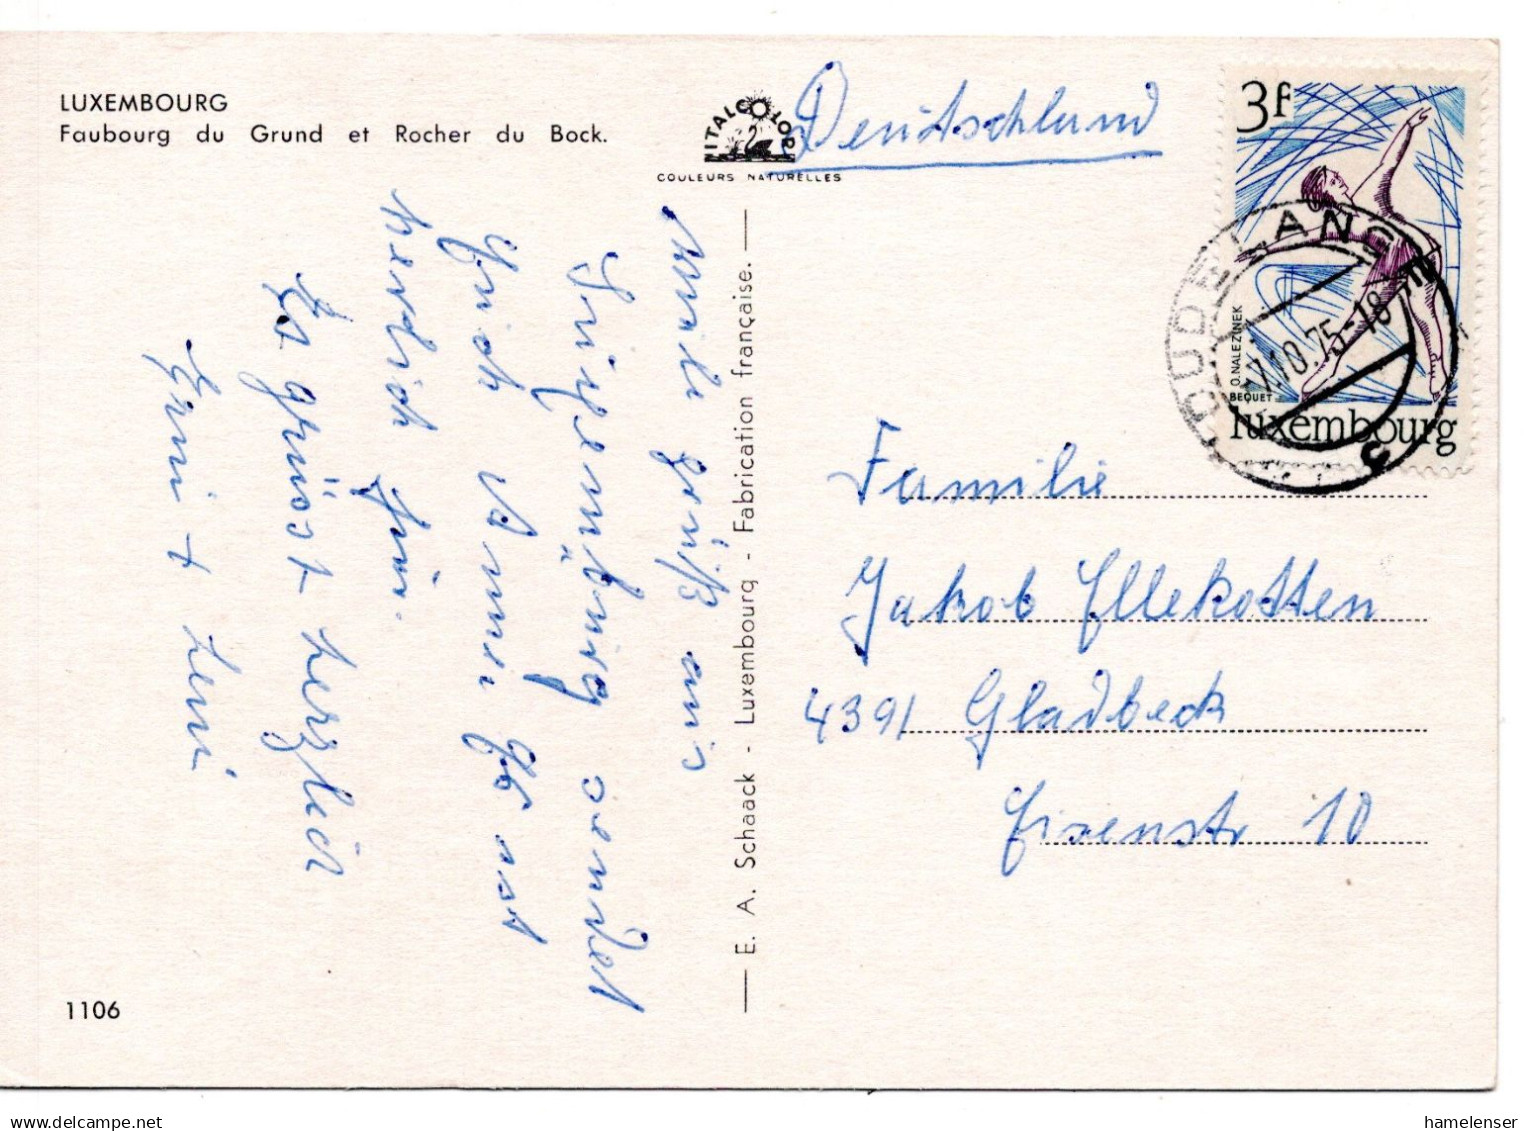 LUXEMBOURG
Faubourg du Grund et Rocher du Bock.
ITALCOLOR
COULEURS NATURELLES
Deutschland
3f
O. NALEZINEK
BEQUET
luxembourg
DUDELANGE
7.10.75-18
Viele Grüße aus
Luxemburg sendet
Euch Anni. Es ist
herrlich hier.
Es grüsst herzlich
Erni + Leni
E. A. Schaack - Luxembourg - Fabrication française.
Familie
Jakob Ellekotten
4391 Gladbeck
Eisenstr 10
1106
delcampe.net
hamelenser